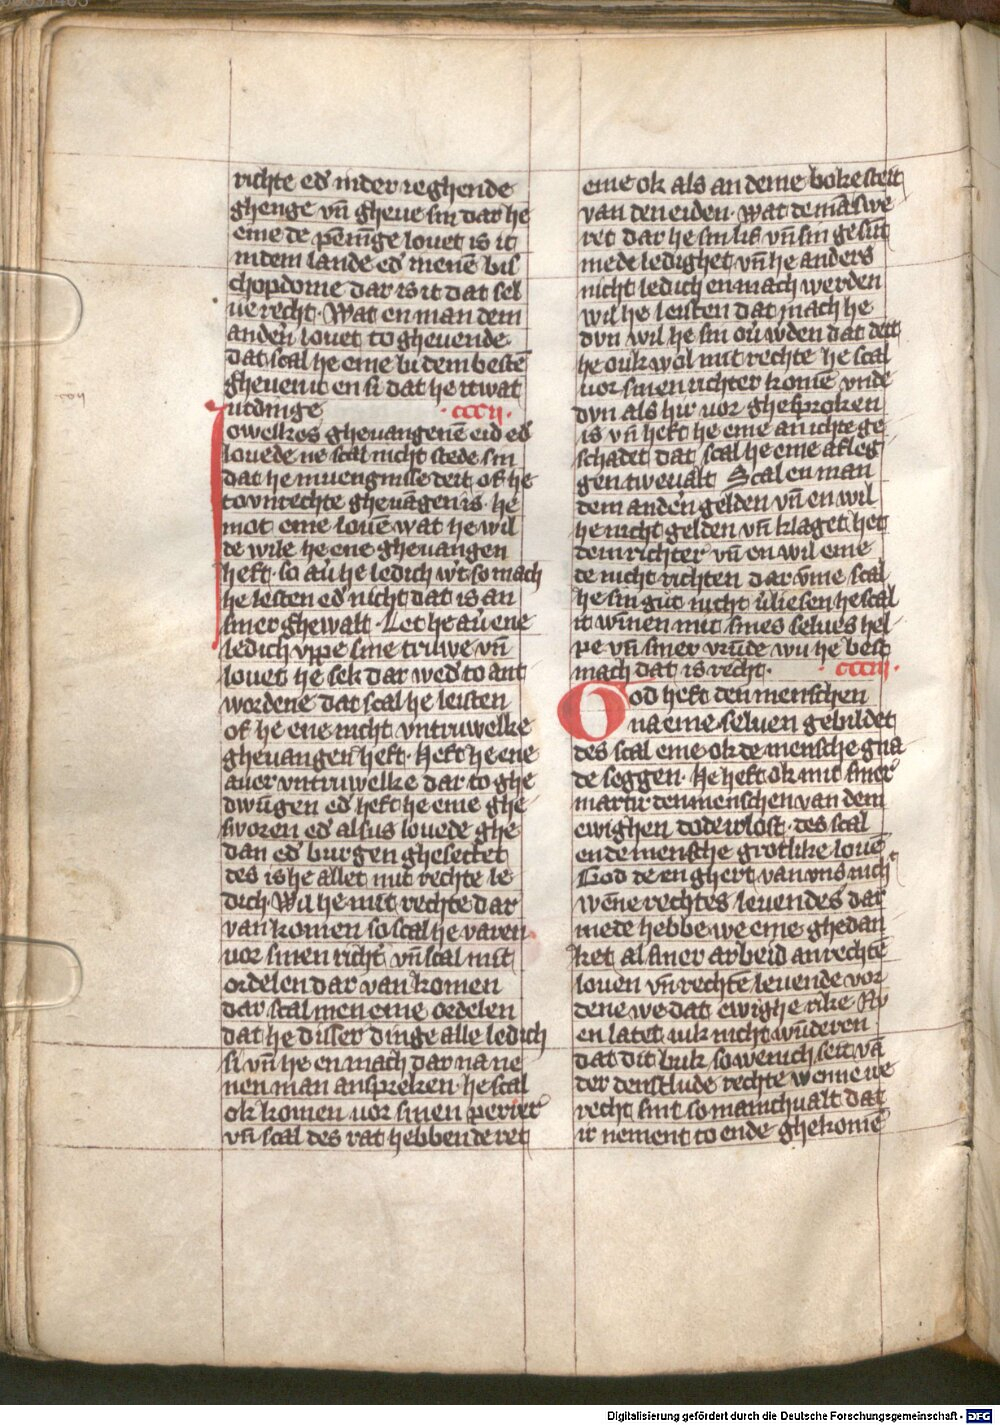 richte ed' in der ieghende
ghenge vn̄ gheue sin dar he
eme de pēni̅ge louet is it
in dem lande ed' i̅ nenē bis
chopdome dar is it dat sel
ue recht. Wat en man dem
andern̄ louet to gheuende
dat scal he eme bi dem bestē
gheuen it en si dat he it wat
ut dinge .cccii.
Iowelkes gheuangenē eid ed'
louede ne scal nicht stede sin
dat he in uengnisse deit. of he
to vnrechte gheuāgen is. he
mot eme louē wat he wil
de wile he ene gheuangen
heft. so au' he ledich w't so mach
he lesten ed' nicht dat is an
siner ghewalt. Let he au' ene
ledich vppe sine truwe vn̄
louet he sek dar wed' to ant
wordene dat scal he leisten
of he ene nicht vntruwelke
gheuangen heft. Heft he ene
auer vntruwelke dar to ghe
dwūgen ed' heft he eme ghe
sworen ed' alsus louede ghe
dan ed' burgen ghesettet
des is he allet mit rechte le
dich. Wil he mit rechte dar
van komen so scal he varen
uor sinen richt' vn̄ scal mit
ordelen dar van komen
dar scal men eme ordelen
dat he disser dinge alle ledich
si vn̄ he en mach dar na ne
nen man anspreken. he scal
ok komen uor sinen
vn̄ scal des rat hebben de ret
eme ok als an deme boke steit
van den eiden. Wat de mā swe
ret dar he sin lif vn̄ sin gesūt
mede ledighet vn̄ he anders
nicht ledich en mach werden
wil he leisten dat mach he
dvn wil he sin ou' w'den dat deit
he ouk wol mit rechte he scal
uor sinen richter komē vnde
dvn als hir uor ghesproken
is vn̄ heft he eme an ichte ge
schadet dat scal he eme afleg
gen twevalt. Scal en man
dem andern̄ gelden vn̄ en wil
he nicht gelden vn̄ klaget het
dem richter vn̄ en wil eme
de nicht richten dar v̄me scal
he sin gut nicht v'liesen he scal
it winen mit sines selues hel
pe vn̄ siner vrūde wu he best
mach dat is recht. .ccciii.
God heft den menschen
na eme seluen gebildet
des scal eme ok de mensche gna
de seggen. He heft ok mit siner
martir den menschen van dem
ewighen dode irlost. des scal
en de mensche grotlike louē
God de en ghert van vns nich't
wēne rechtes leuendes dar
mede hebbe we eme ghedan
ket al siner arbeid an rechtē
louen vn̄ rechtē leuende vor
dene we dat ewighe rike Nv
en latet iuk nicht wūderen
dat dit buk so wenich seit vā
der denstlude rechte wēne we
recht sint so manichualt dat
ir nement to ende ghekomē
Digitalisierung gefördert durch die Deutsche Forschungsgemeinschaft - DFG